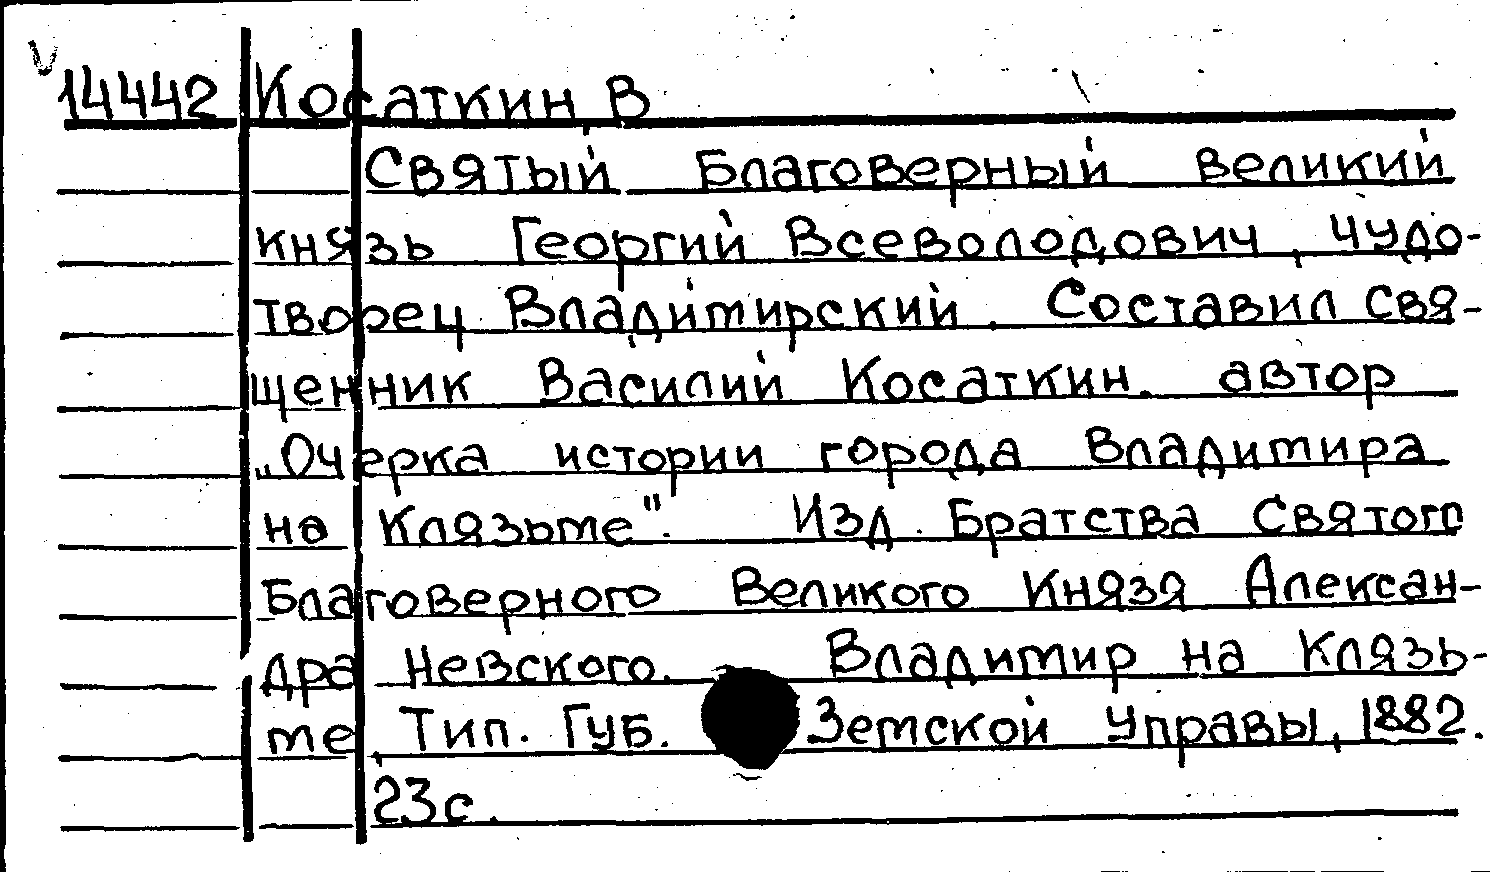 14442 Косаткин, В
Святый Благоверный великий
князь Георгий Всеволодович, чудо-
творец Владимирский. Составил свя-
щенник Василий Косаткин. автор
„Очерка истории города Владимира
на Клязьме". Изд. Братства Святого
Благоверного Великого Князя Алексан-
дра Невского. Владимир на Клязь-
ме, Тип. Губ. Земской Управы, 1882.
23с.